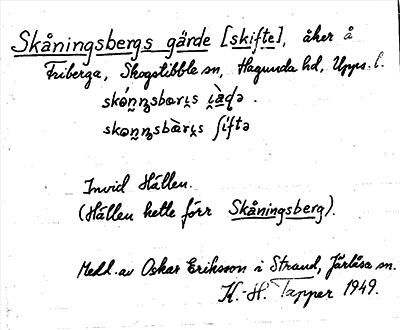 Skåningsbergs gärde [skifte], åker å
Friberga, Skogstibble sn, Hagunda hd, Upps. l.
Invid Hällen.
(Hällen hette förr Skåningsberg).
Medd. av Oskar Eriksson i Strand, Järlåsa sn.
K.-H. Tapper 1949.